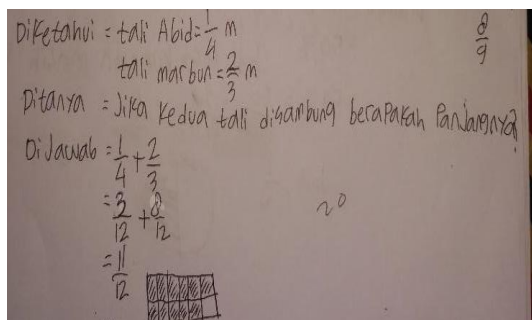 Diketahui = tali Abid = 1/4 m
8/9
tali marbun = 2/3 m
Ditanya = Jika kedua tali disambung berapakah Panjangnya?
Dijawab = 1/4 + 2/3
= 3/12 + 8/12
20
= 11/12